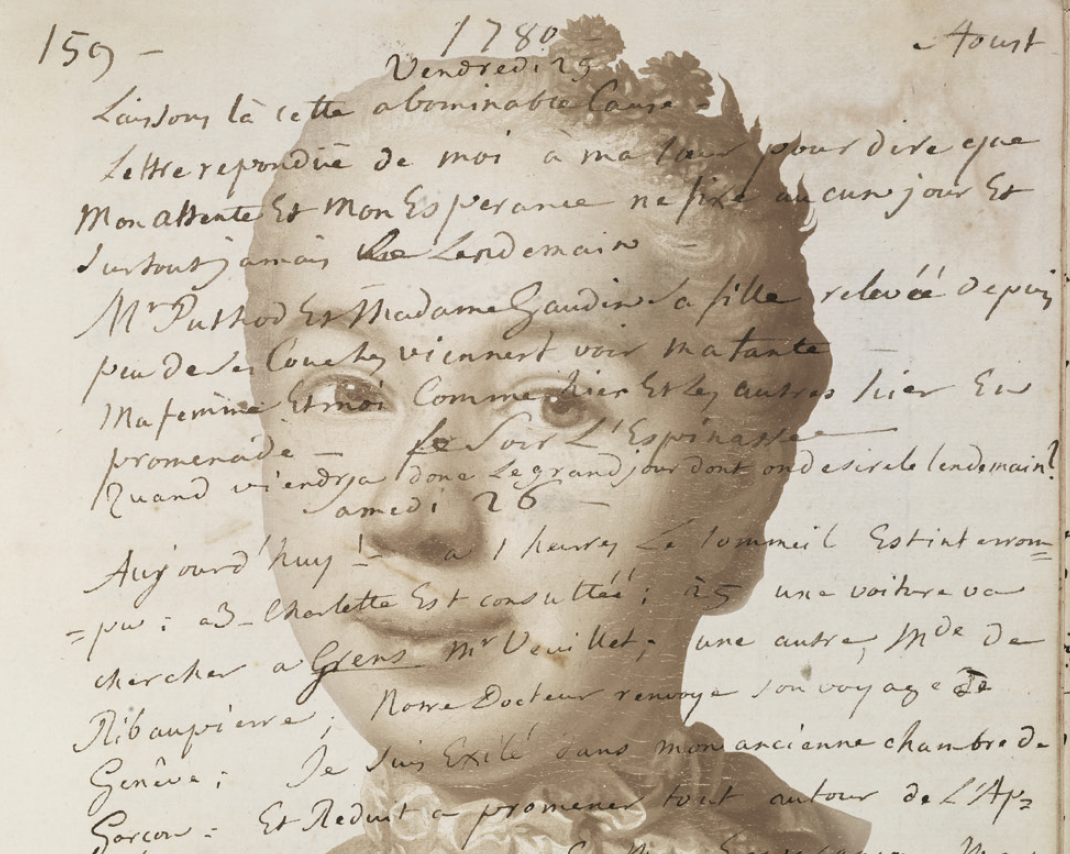 159 – 1780 – Aoust
Vendredi 25
Laissons là cette abominable Cause –
Lettre repondüe de moi à ma sœur pour dire que
Mon attente Et Mon Esperance ne fixe aucun jour Et
surtout jamais le Lendemain –
Mr Puthod Et Madame Gaudin sa fille relevéé depuis
peu de ses Couches viennent voir ma tante
Ma femme Et moi Comme hier Et les autres hier En
promenade – le soir L'Espinasse
Quand viendra donc Le grand jour dont on desire le lendemain?
Samedi 26 –
Aujourd'huy ! – a 1 heures Le sommeil Est interrom=
=pu : a 3 – Charlotte Est consultéé ; à 5 une voiture va
chercher a Grens Mr Veuillet ; une autre, Mde de
Ribaupierre ; Notre Docteur renvoye son voyage de
Genêve ; Je suis Exilé dans mon ancienne chambre de
Garcon : Et Reduit a promener tout autour de L'Ap=